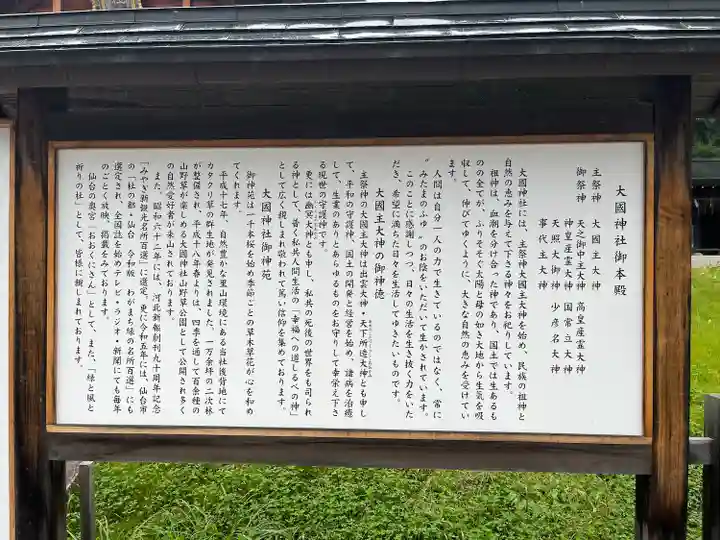 大國神社御本殿
主祭神 大國主大神
御祭神 天之御中主大神 高皇産霊大神
神皇産霊大神 国常立大神
天照大御神 少彦名大神
事代主大神
大國神社には、主祭神大國主大神を始め、民族の祖神と
自然の恵みを与えて下さる神々をお祀りしています。
祖神は、血潮を分け合った神であり、国土では生あるも
のの全てが、ふりそそぐ太陽と母の如き大地から生気を吸
収して、伸びてゆくように、大きな自然の恵みを受けてい
ます。
人間は自分一人の力で生きているのではなく、常に
〝みたまのふゆ〟のお陰をいただいて生かされています。
このことに感謝しつつ、日々の生活を生き抜く力をいた
だき、希望に満ちた日々を生活してゆきたいものです。
大國主大神の御神徳
主祭神の大國主大神は出雲大神・天下所造大神とも申し
て、平和の守護神、国土の開発と経営を始め、諸病を治癒
して、生業のありとあらゆるものをお守りして幸栄え下さ
る現世の守護神です。
更には幽冥大神とも申し、私共の死後の世界をも司られ
る神として、普く私共人間生活の「幸福への道しるべの神」
として広く親しまれ敬われて篤い信仰を集めております。
大國神社御神苑
御神苑は一千本桜を始め季節ごとの草木草花が心を和め
てくれます。
平成十七年、自然豊かな里山環境にある当社後背地にて
カタクリ草の群生地が発見されました。一万余坪の二次林
が整備され、平成十八年春よりは、四季を通して百余種の
山野草が楽しめる大國神社山野草公園として公開され多く
の自然愛好者が来山されております。
また、昭和六十二年には、河北新報創刊九十周年記念
「みやぎ新観光名所百選」に選定。更に令和五年には、仙台市
の「杜の都・仙台 令和版 わがまち緑の名所百選」にも
選定され、全国誌を始めテレビ・ラジオ・新聞にても毎年
のごとく放映、掲載をみております。
仙台の奥宮「おおくにさん」として、また、「緑と風と
祈りの社」として、皆様に親しまれております。